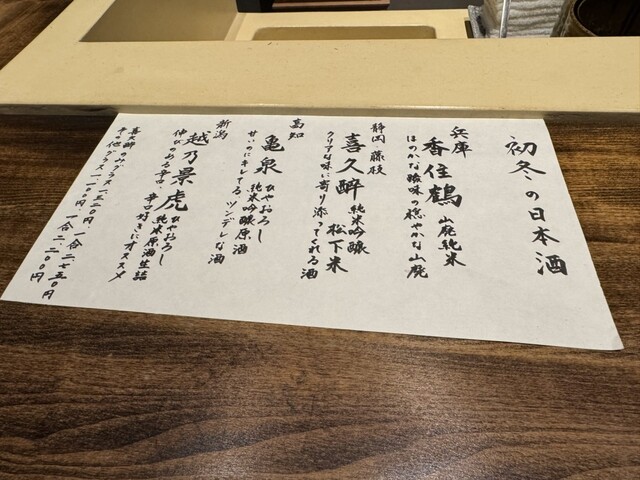 初冬の日本酒
兵庫
香住鶴 山廃純米
ほのかな酸味の穏やかな山廃
静岡 藤枝
喜久酔 純米吟醸 松下米
クリアな味に寄り添ってくれる酒
高知
亀泉 ひやおろし 純米吟醸原酒
甘いのにキレてる ツンデレな酒
新潟
越乃景虎 ひやおろし 純米原酒生詰
伸びのある辛口、辛口好きにオススメ
喜久酔のみグラス一、三二〇円、一合二、七五〇円
その他グラス一、一〇〇円 一合二、二〇〇円